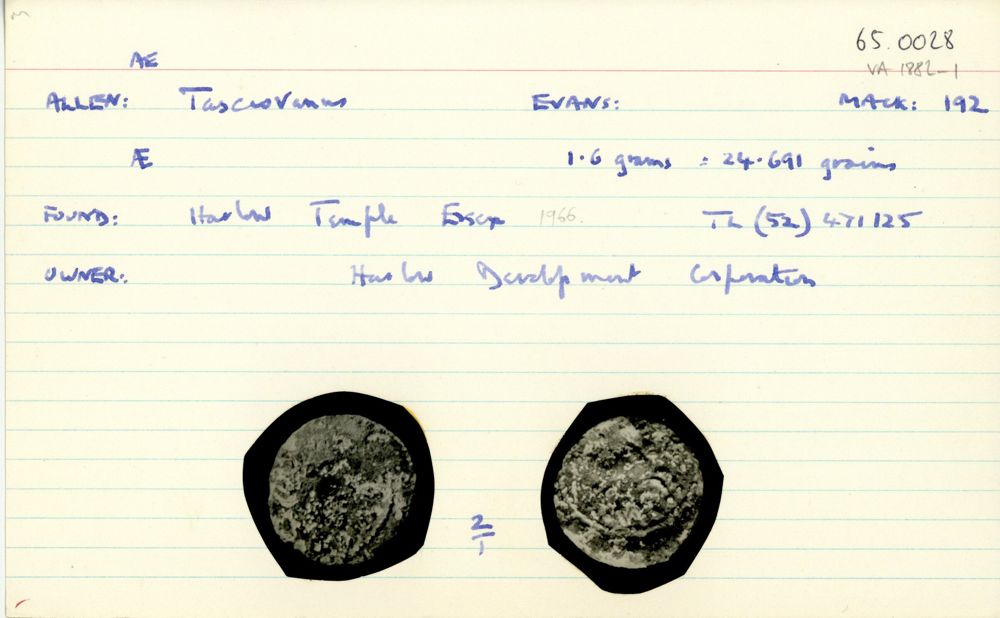 65.0028
VA 1882-1
AE
ALLEN: Tasciovanus EVANS: MACK: 192
Æ 1.6 grams = 24.691 grains
FOUND: Harlow Temple Essex 1966. TL (52) 471125
OWNER: Harlow Development Corporation
2/1